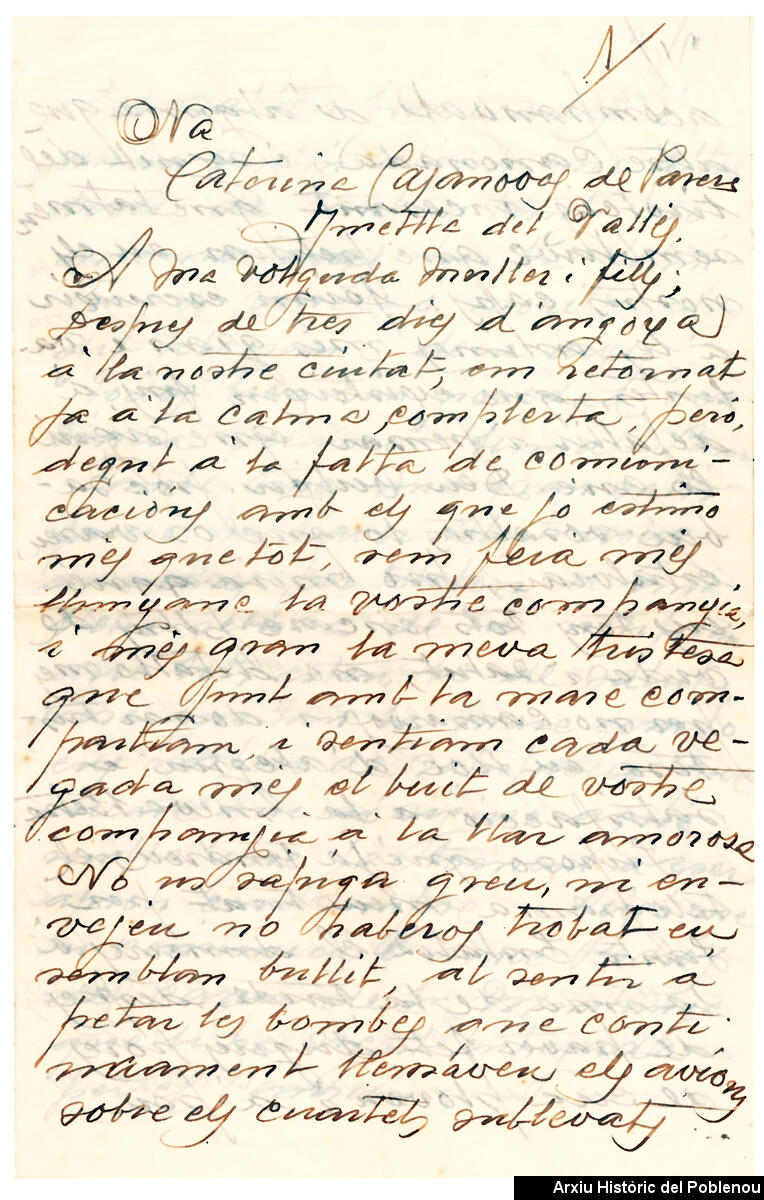 1/
Na
Caterina Casanovas de Parera
Ametlla del Vallés.
A ma volguda muller i fills;
Despres de tres dies d'angoxa
à la nostre ciutat, em retornat
ja à la calma, complerta, però,
degut à la falta de comuni-
cacions amb els que jo estimo
mes que tot, rem feia més
llunyane la vostre companyia,
i més gran la meva tristesa
que junt amb la mare com-
partiam, i sentiam cada ve-
gada més el buit de vostre
companyia à la llar amorosa
No us sápiga greu, ni en-
vejeu no haberos trobat eu
semblan bullit, al sentir à
petar les bombes que conti
nuament llensáveu els avions
sobre els cuartels sublevats
Arxiu Històric del Poblenou